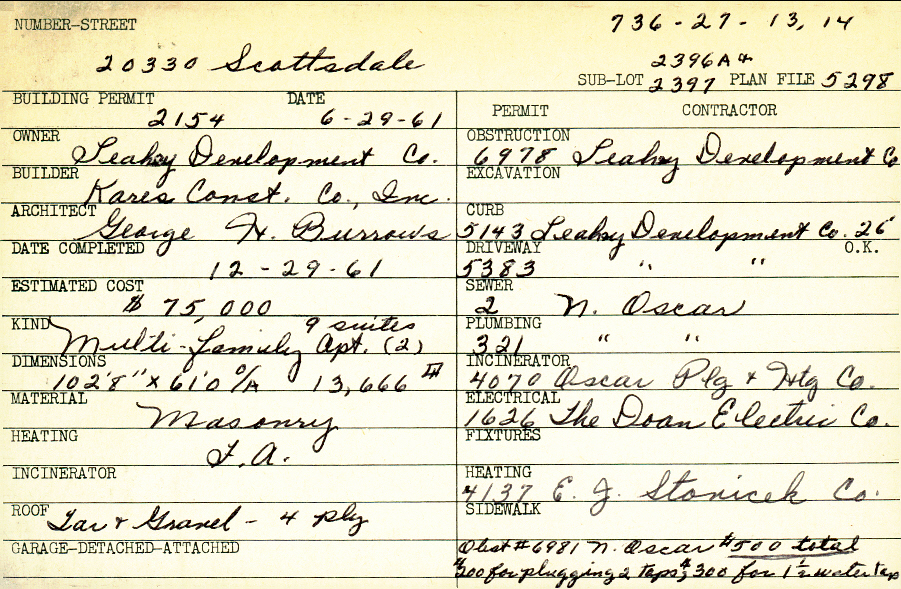 NUMBER-STREET 736-27-13, 14
20330 Scottsdale 2396A &
SUB-LOT 2397 PLAN FILE 5298
BUILDING PERMIT DATE
2154 6-29-61
OWNER
Leahy Development Co.
BUILDER
Kares Const. Co., Inc.
ARCHITECT
George H. Burrows
DATE COMPLETED
12-29-61
ESTIMATED COST
$ 75,000
KIND 9 suites
Multi-family Apt. (2)
DIMENSIONS
102'8" x 61'0 O/A 13,666
MATERIAL
Masonry
HEATING
F.A.
INCINERATOR
ROOF Tar & Gravel - 4 ply
GARAGE-DETACHED-ATTACHED
PERMIT CONTRACTOR
OBSTRUCTION
6978 Leahy Development Co
EXCAVATION
CURB
5143 Leahy Development Co. 26'
DRIVEWAY O.K.
5383 " "
SEWER
2 N. Oscar
PLUMBING
321 " "
INCINERATOR
4070 Oscar Plg & Htg Co.
ELECTRICAL
1626 The Doan Electric Co.
FIXTURES
HEATING
4137 E. J. Stonicek Co.
SIDEWALK
Obst #6981 N. Oscar $500 total
$200 for plugging 2 taps; $300 for 1½ water tap